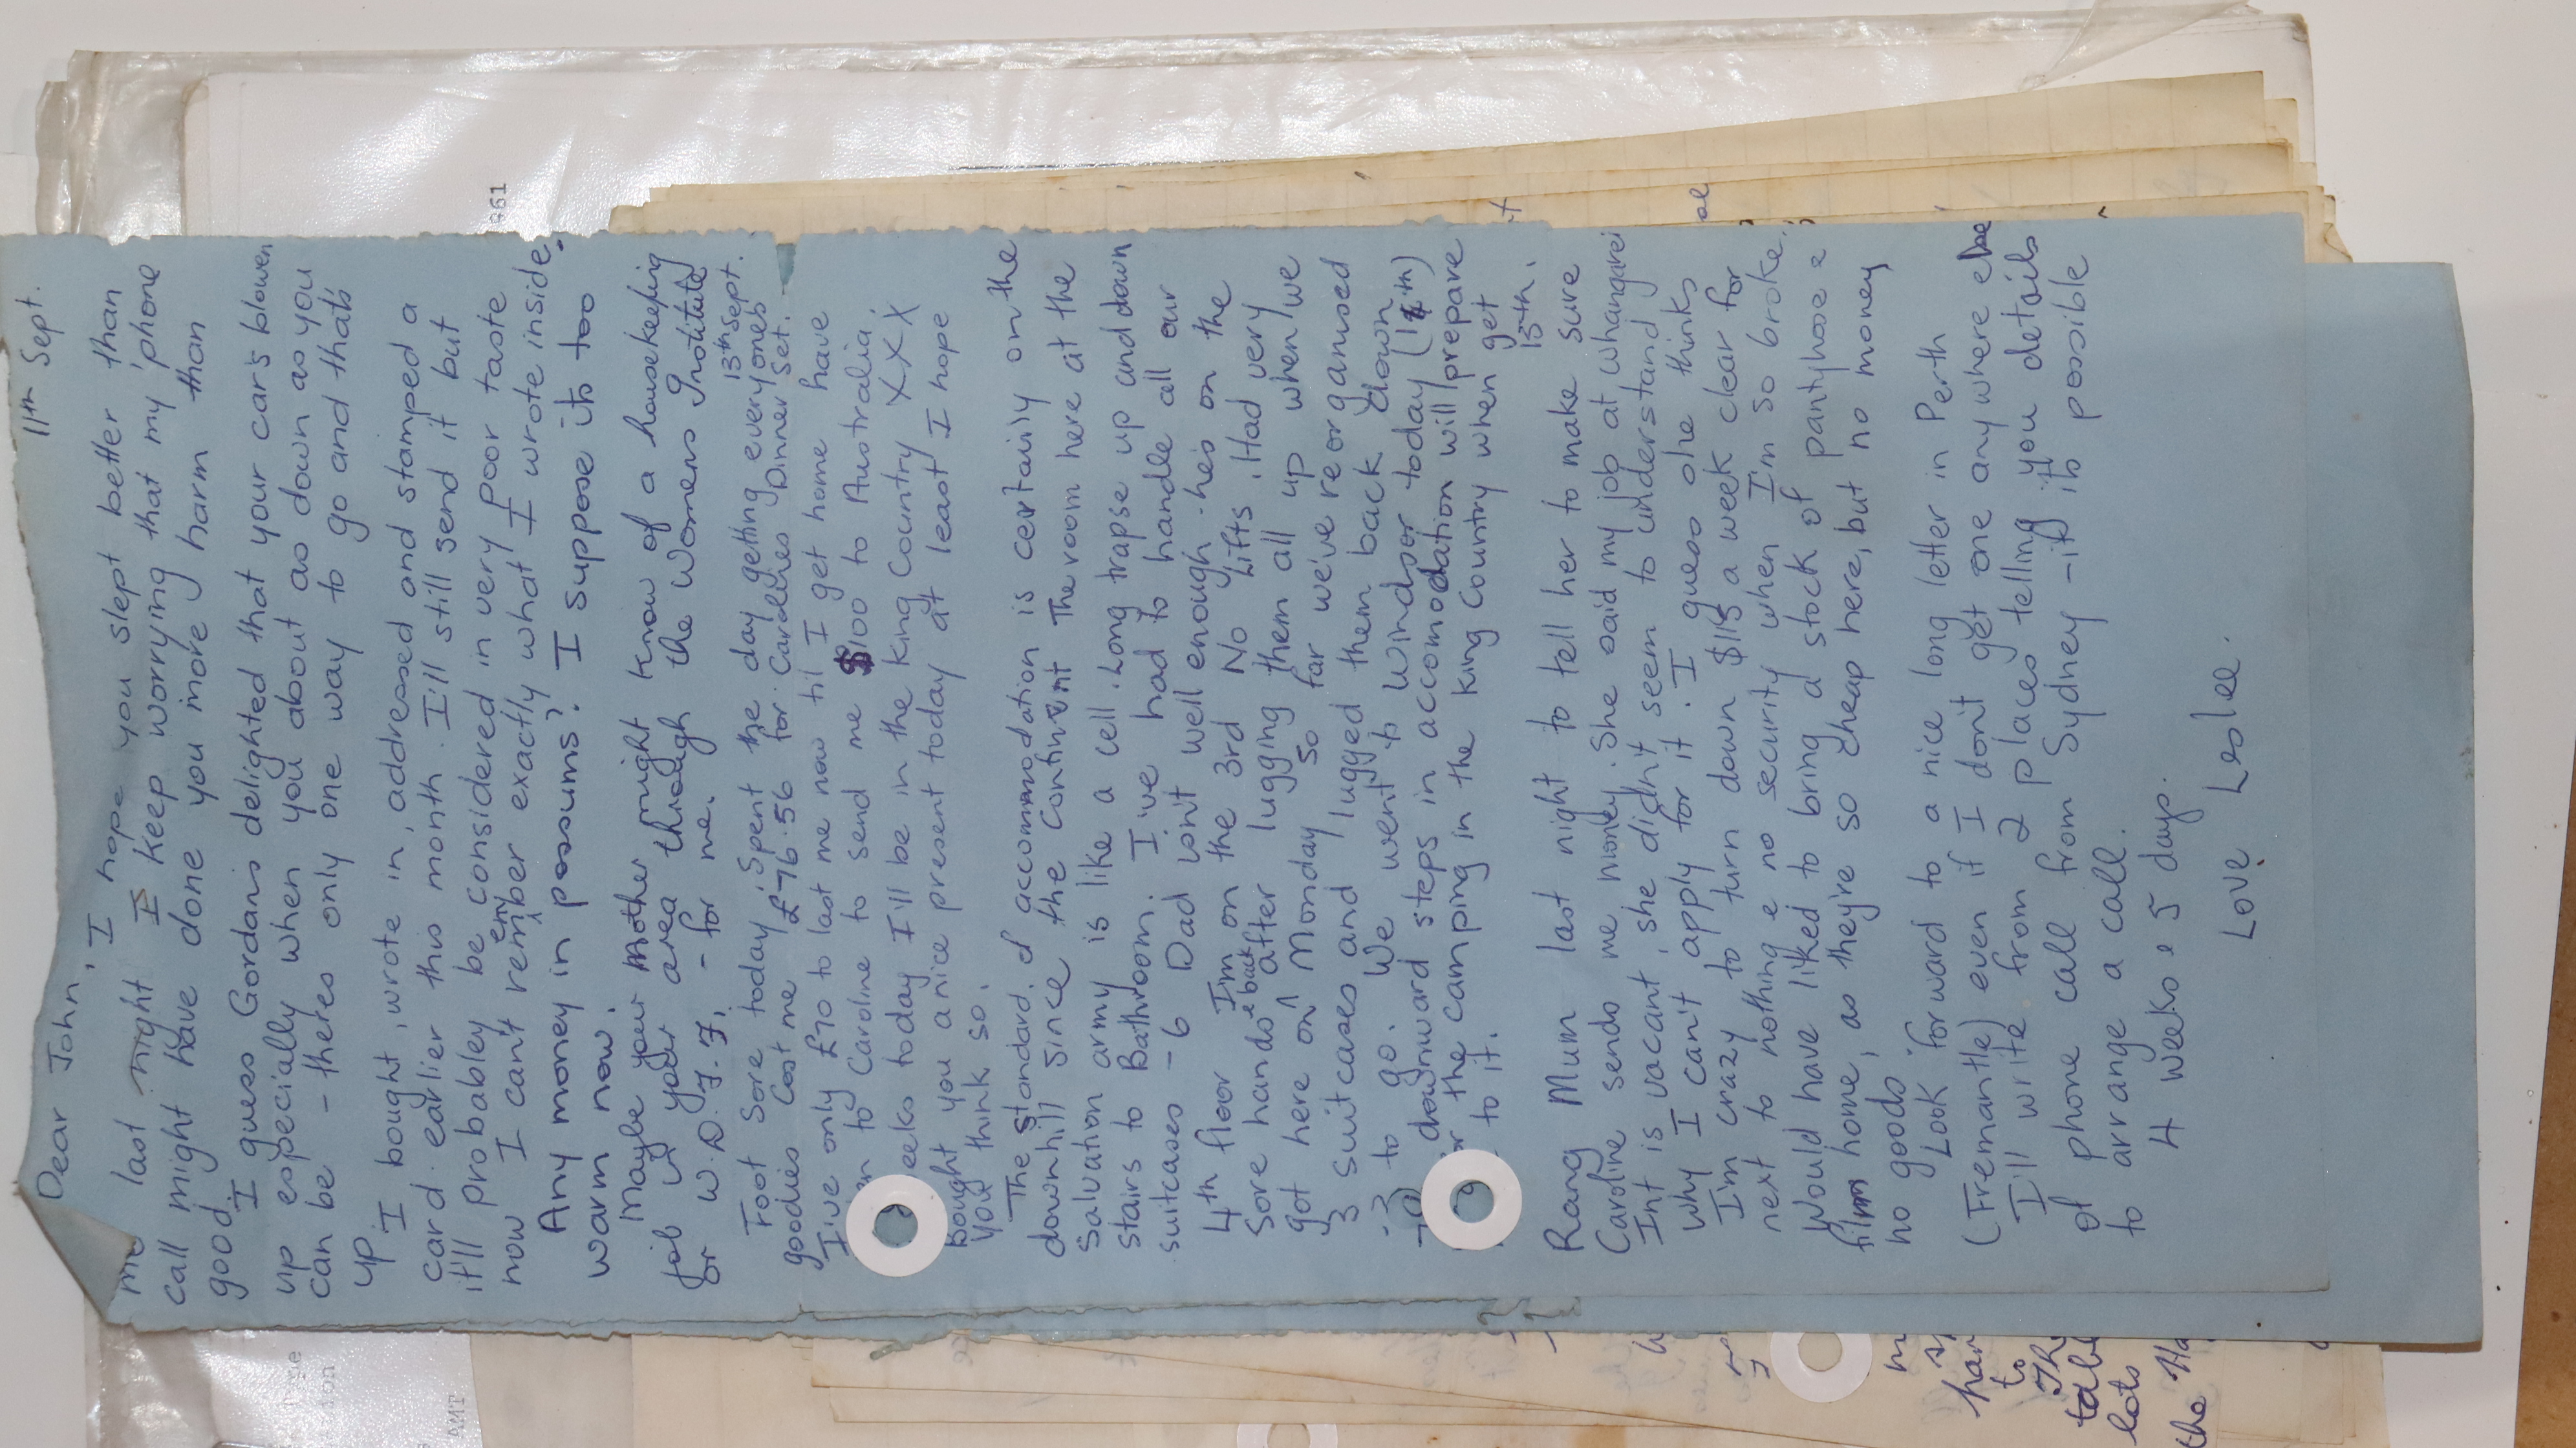 11th Sept.
Dear John, I hope you slept better than
me last night I keep worrying that my phone
call might have done you more harm than
good.
I guess Gordans delighted that your car's blowen
up especially when you about as down as you
can be - theres only one way to go and that's
up.
I bought, wrote in, addressed and stamped a
card earlier this month. I'll still send it but
it'll probabley be considered in very poor taste
now I can't remember exactly what I wrote inside.
Any money in possums? I suppose its too
warm now.
Maybe your Mother might know of a housekeeping
job in your area through the Womens Institute
or W.D.F.F. - for me.
13th Sept.
Foot Sore today, Spent the day getting everyones
goodies Cost me £76.56 for Carolines Dinner Set.
I've only £70 to last me now til I get home have
to Caroline to send me $100 to Australia.
eeks today I'll be in the King Country XXX
Bought you a nice present today at least I hope
you think so.
The standard of accommodation is certainly on the
downhill since the continent The room here at the
Salvation army is like a cell. Long trapse up and down
stairs to Bathroom. I've had to handle all our
suitcases - 6 Dad isn't well enough - he's on the
4th floor I'm on the 3rd No Lifts. Had very
Sore hands & back after lugging them all up when we
got here on Monday So far we've reorganised
3 suitcases and lugged them back down
.3 to go. We went to Windsor today (14th)
downward steps in accomodation will prepare
or the camping in the King Country when get
to it.
15th.
Rang Mum last night to tell her to make sure
Caroline sends me money. She said my job at Whangarei
Int is vacant, she didn't seem to understand
why I can't apply for it. I guess she thinks
I'm crazy to turn down $115 a week clear for
next to nothing & no security when I'm so broke.
Would have liked to bring a stock of pantyhose &
film home, as they're so cheap here, but no money
no goods.
Look forward to a nice long letter in Perth
(Fremantle) even if I don't get one anywhere else
I'll write from 2 places telling you details
of phone call from Sydney - if its possible
to arrange a call.
4 weeks & 5 days.
Love Leslee.
961
AMT
har
to
Th
table
lots
the Ha